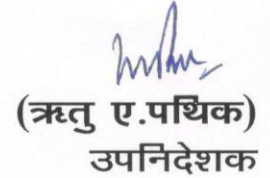 (ऋतु ए.पथिक)
उपनिदेशक